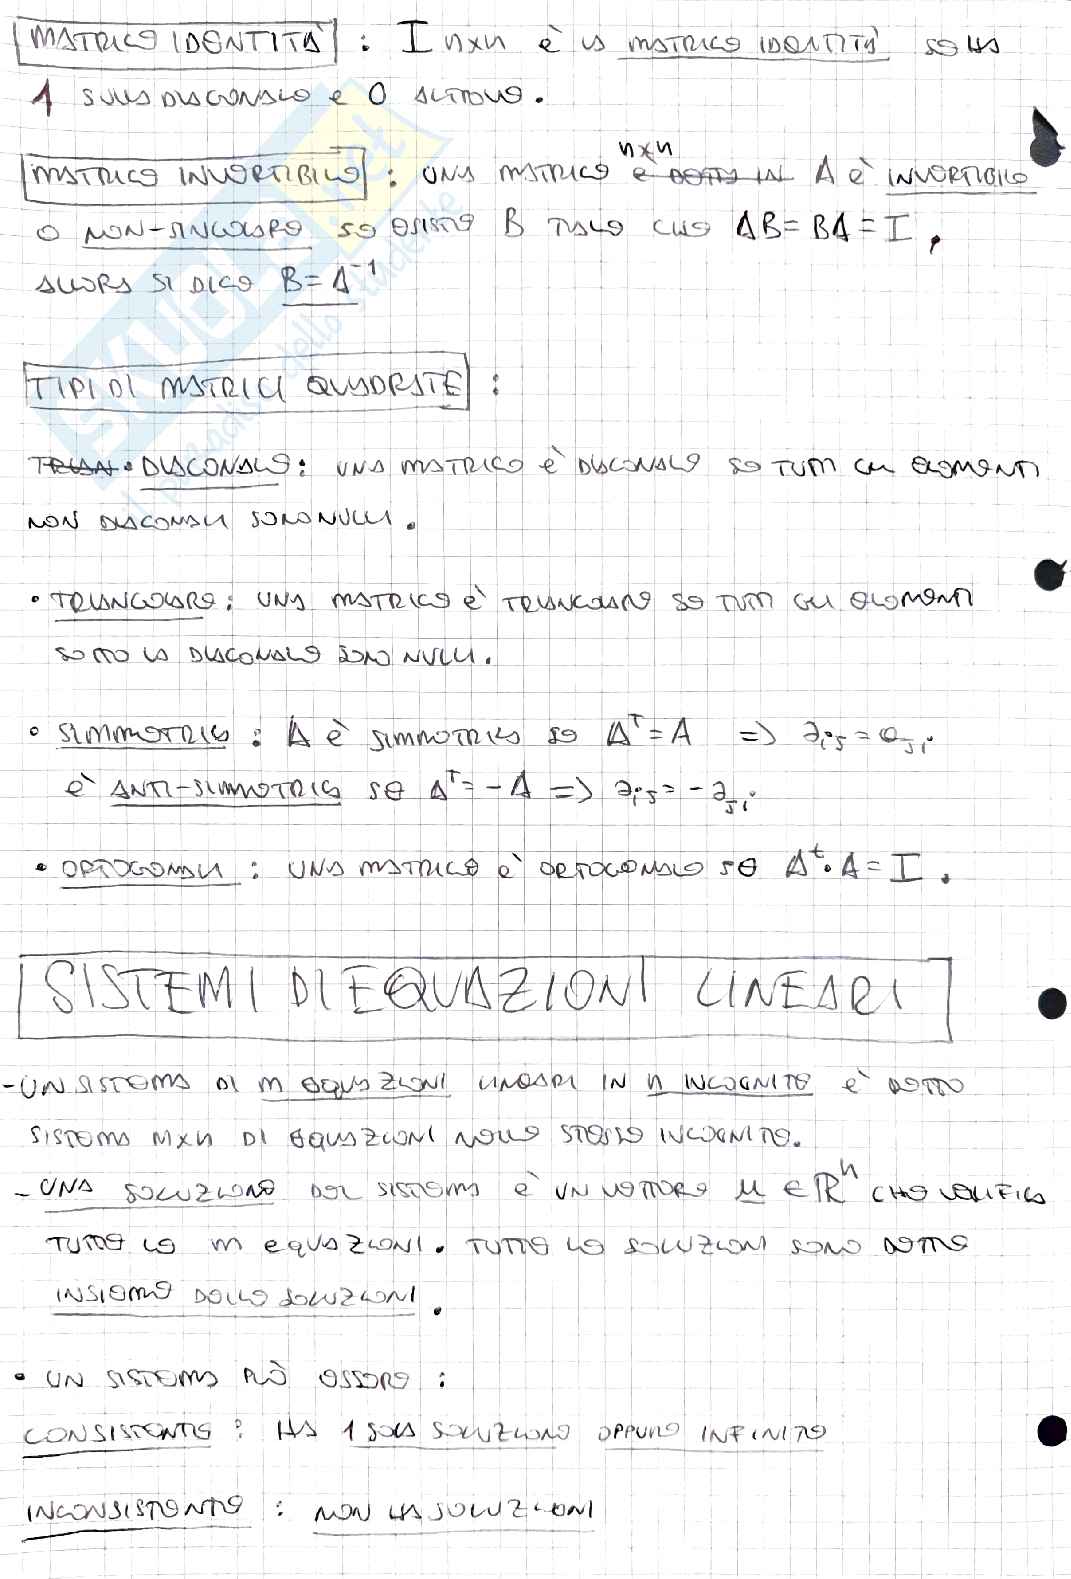 MATRICE IDENTITÀ : I nxn È LA MATRICE IDENTITÀ SE HA
1 SULLA DIAGONALE E 0 ALTROVE.
MATRICE INVERTIBILE : UNA MATRICE nxn E DETTA IN A È INVERTIBILE
O NON-SINGOLARE SE ESISTE B TALE CHE AB=BA=I,
ALLORA SI DICE B=A⁻¹
TIPI DI MATRICI QUADRATE :
TRIAN • DIAGONALE: UNA MATRICE È DIAGONALE SE TUTTI GLI ELEMENTI
NON DIAGONALI SONO NULLI.
• TRIANGOLARE: UNA MATRICE È TRIANGOLARE SE TUTTI GLI ELEMENTI
SOTTO LA DIAGONALE SONO NULLI.
• SIMMETRICA : A È SIMMETRICA SE Aᵀ=A => aij=aji
È ANTI-SIMMETRICA SE Aᵀ=-A => aij=-aji
• ORTOGONALI : UNA MATRICE È ORTOGONALE SE Aᵗ·A=I.
SISTEMI DI EQUAZIONI LINEARI
-UN SISTEMA DI m EQUAZIONI LINEARI IN n INCOGNITE È DETTO
SISTEMA mxn DI EQUAZIONI NELLE STESSE INCOGNITE.
- UNA SOLUZIONE DEL SISTEMA È UN VETTORE u ∈ ℝⁿ CHE VERIFICA
TUTTE LE m EQUAZIONI. TUTTE LE SOLUZIONI SONO DETTE
INSIEME DELLE SOLUZIONI.
• UN SISTEMA PUÒ ESSERE :
CONSISTENTE : HA 1 SOLA SOLUZIONE OPPURE INFINITE
INCONSISTENTE : NON HA SOLUZIONI
SKUOLA.net
il paradiso dello studente